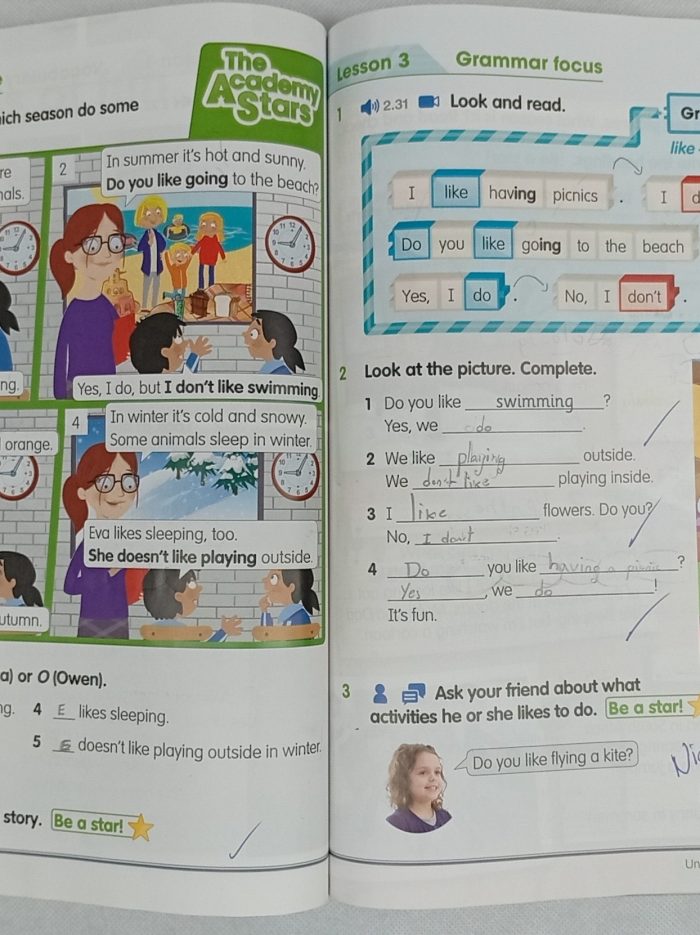 ich season do some
The
Academy
Stars
re
nals.
2
In summer it's hot and sunny.
Do you like going to the beach?
ng.
Yes, I do, but I don't like swimming
l orange.
4
In winter it's cold and snowy.
Some animals sleep in winter.
Eva likes sleeping, too.
She doesn't like playing outside.
utumn.
a) or O (Owen).
ng. 4 E likes sleeping.
5 E doesn't like playing outside in winter.
story. Be a star!
Lesson 3 Grammar focus
1 2.31 Look and read.
Gr
like
I like having picnics . I d
Do you like going to the beach
Yes, I do . No, I don't .
2 Look at the picture. Complete.
1 Do you like swimming ?
Yes, we do .
2 We like playing outside.
We don't like playing inside.
3 I like flowers. Do you?
No, I don't .
4 Do you like having a picnic ?
Yes , we do !
It's fun.
3 Ask your friend about what
activities he or she likes to do. Be a star!
Do you like flying a kite?
Ni
Un